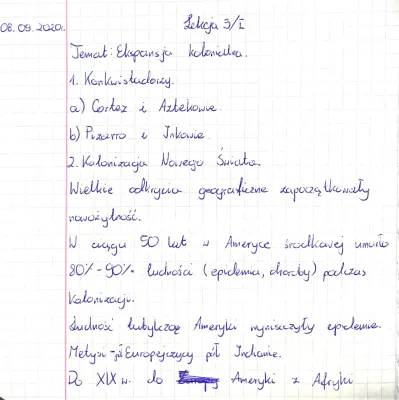 08.09.2020r. Lekcja 3/I
Temat: Ekspansja kolonialna.
1. Konkwistadorzy.
a) Cortez i Aztekowie
b) Pizarro i Inkowie
2. Kolonizacja Nowego Świata.
Wielkie odkrycia geograficzne zapoczątkowały
nowożytność.
W ciągu 50 lat w Ameryce środkowej umarło
80%-90% ludności (epidemia, choroby) podczas
kolonizacji.
Ludność tubylczą Ameryki wyniszczyły epidemie.
Metysi - pół Europejczycy pół Indianie.
Do XIX w. do Ameryki z Afryki